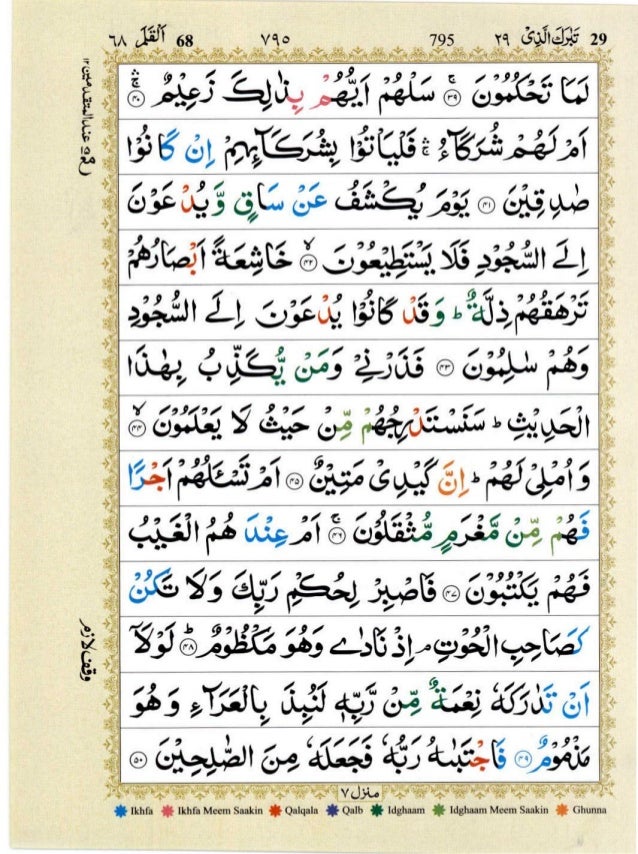 29 تَبٰرَكَ الَّذِىْ ٢٩ 795 ٧٩٥ 68 اَلْقَلَم ٦٨
لَمَا تَحْكُمُوْنَ ۚ ﴿٣٩﴾ سَلْهُمْ اَيُّهُمْ بِذٰلِكَ زَعِيْمٌ ۚۛ ﴿٤٠﴾
اَمْ لَهُمْ شُرَكَآءُ ۛۚ فَلْيَاْتُوْا بِشُرَكَآئِهِمْ اِنْ كَانُوْا
صٰدِقِيْنَ ﴿٤١﴾ يَوْمَ يُكْشَفُ عَنْ سَاقٍ وَّيُدْعَوْنَ
اِلَى السُّجُوْدِ فَلَا يَسْتَطِيْعُوْنَ ۙ ﴿٤٢﴾ خَاشِعَةً اَبْصَارُهُمْ
تَرْهَقُهُمْ ذِلَّةٌ ؕ وَقَدْ كَانُوْا يُدْعَوْنَ اِلَى السُّجُوْدِ
وَهُمْ سٰلِمُوْنَ ﴿٤٣﴾ فَذَرْنِىْ وَمَنْ يُّكَذِّبُ بِهٰذَا
الْحَدِيْثِ ؕ سَنَسْتَدْرِجُهُمْ مِّنْ حَيْثُ لَا يَعْلَمُوْنَ ۙ ﴿٤٤﴾
وَاُمْلِىْ لَهُمْ ؕ اِنَّ كَيْدِىْ مَتِيْنٌ ﴿٤٥﴾ اَمْ تَسْـَٔلُهُمْ اَجْرًا
فَهُمْ مِّنْ مَّغْرَمٍ مُّثْقَلُوْنَ ۚ ﴿٤٦﴾ اَمْ عِنْدَهُمُ الْغَيْبُ
فَهُمْ يَكْتُبُوْنَ ﴿٤٧﴾ فَاصْبِرْ لِحُكْمِ رَبِّكَ وَلَا تَكُنْ
كَصَاحِبِ الْحُوْتِ ۘ اِذْ نَادٰى وَهُوَ مَكْظُوْمٌ ؕ ﴿٤٨﴾ لَوْلَاۤ
اَنْ تَدٰرَكَهٗ نِعْمَةٌ مِّنْ رَّبِّهٖ لَنُبِذَ بِالْعَرَآءِ وَهُوَ
مَذْمُوْمٌ ﴿٤٩﴾ فَاجْتَبٰىهُ رَبُّهٗ فَجَعَلَهٗ مِنَ الصّٰلِحِيْنَ ﴿٥٠﴾
منزل ٧
وقف لازم
Ikhfa Ikhfa Meem Saakin Qalqala Qalb Idghaam Idghaam Meem Saakin Ghunna